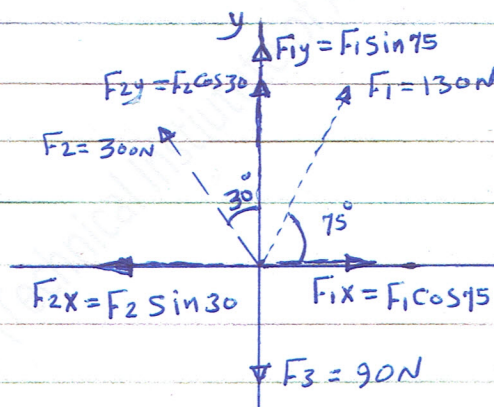 y
F1y = F1 sin 75
F2y = F2 cos 30
F1 = 130N
F2 = 300N
30°
75°
F2x = F2 sin 30
F1x = F1 cos 75
F3 = 90N